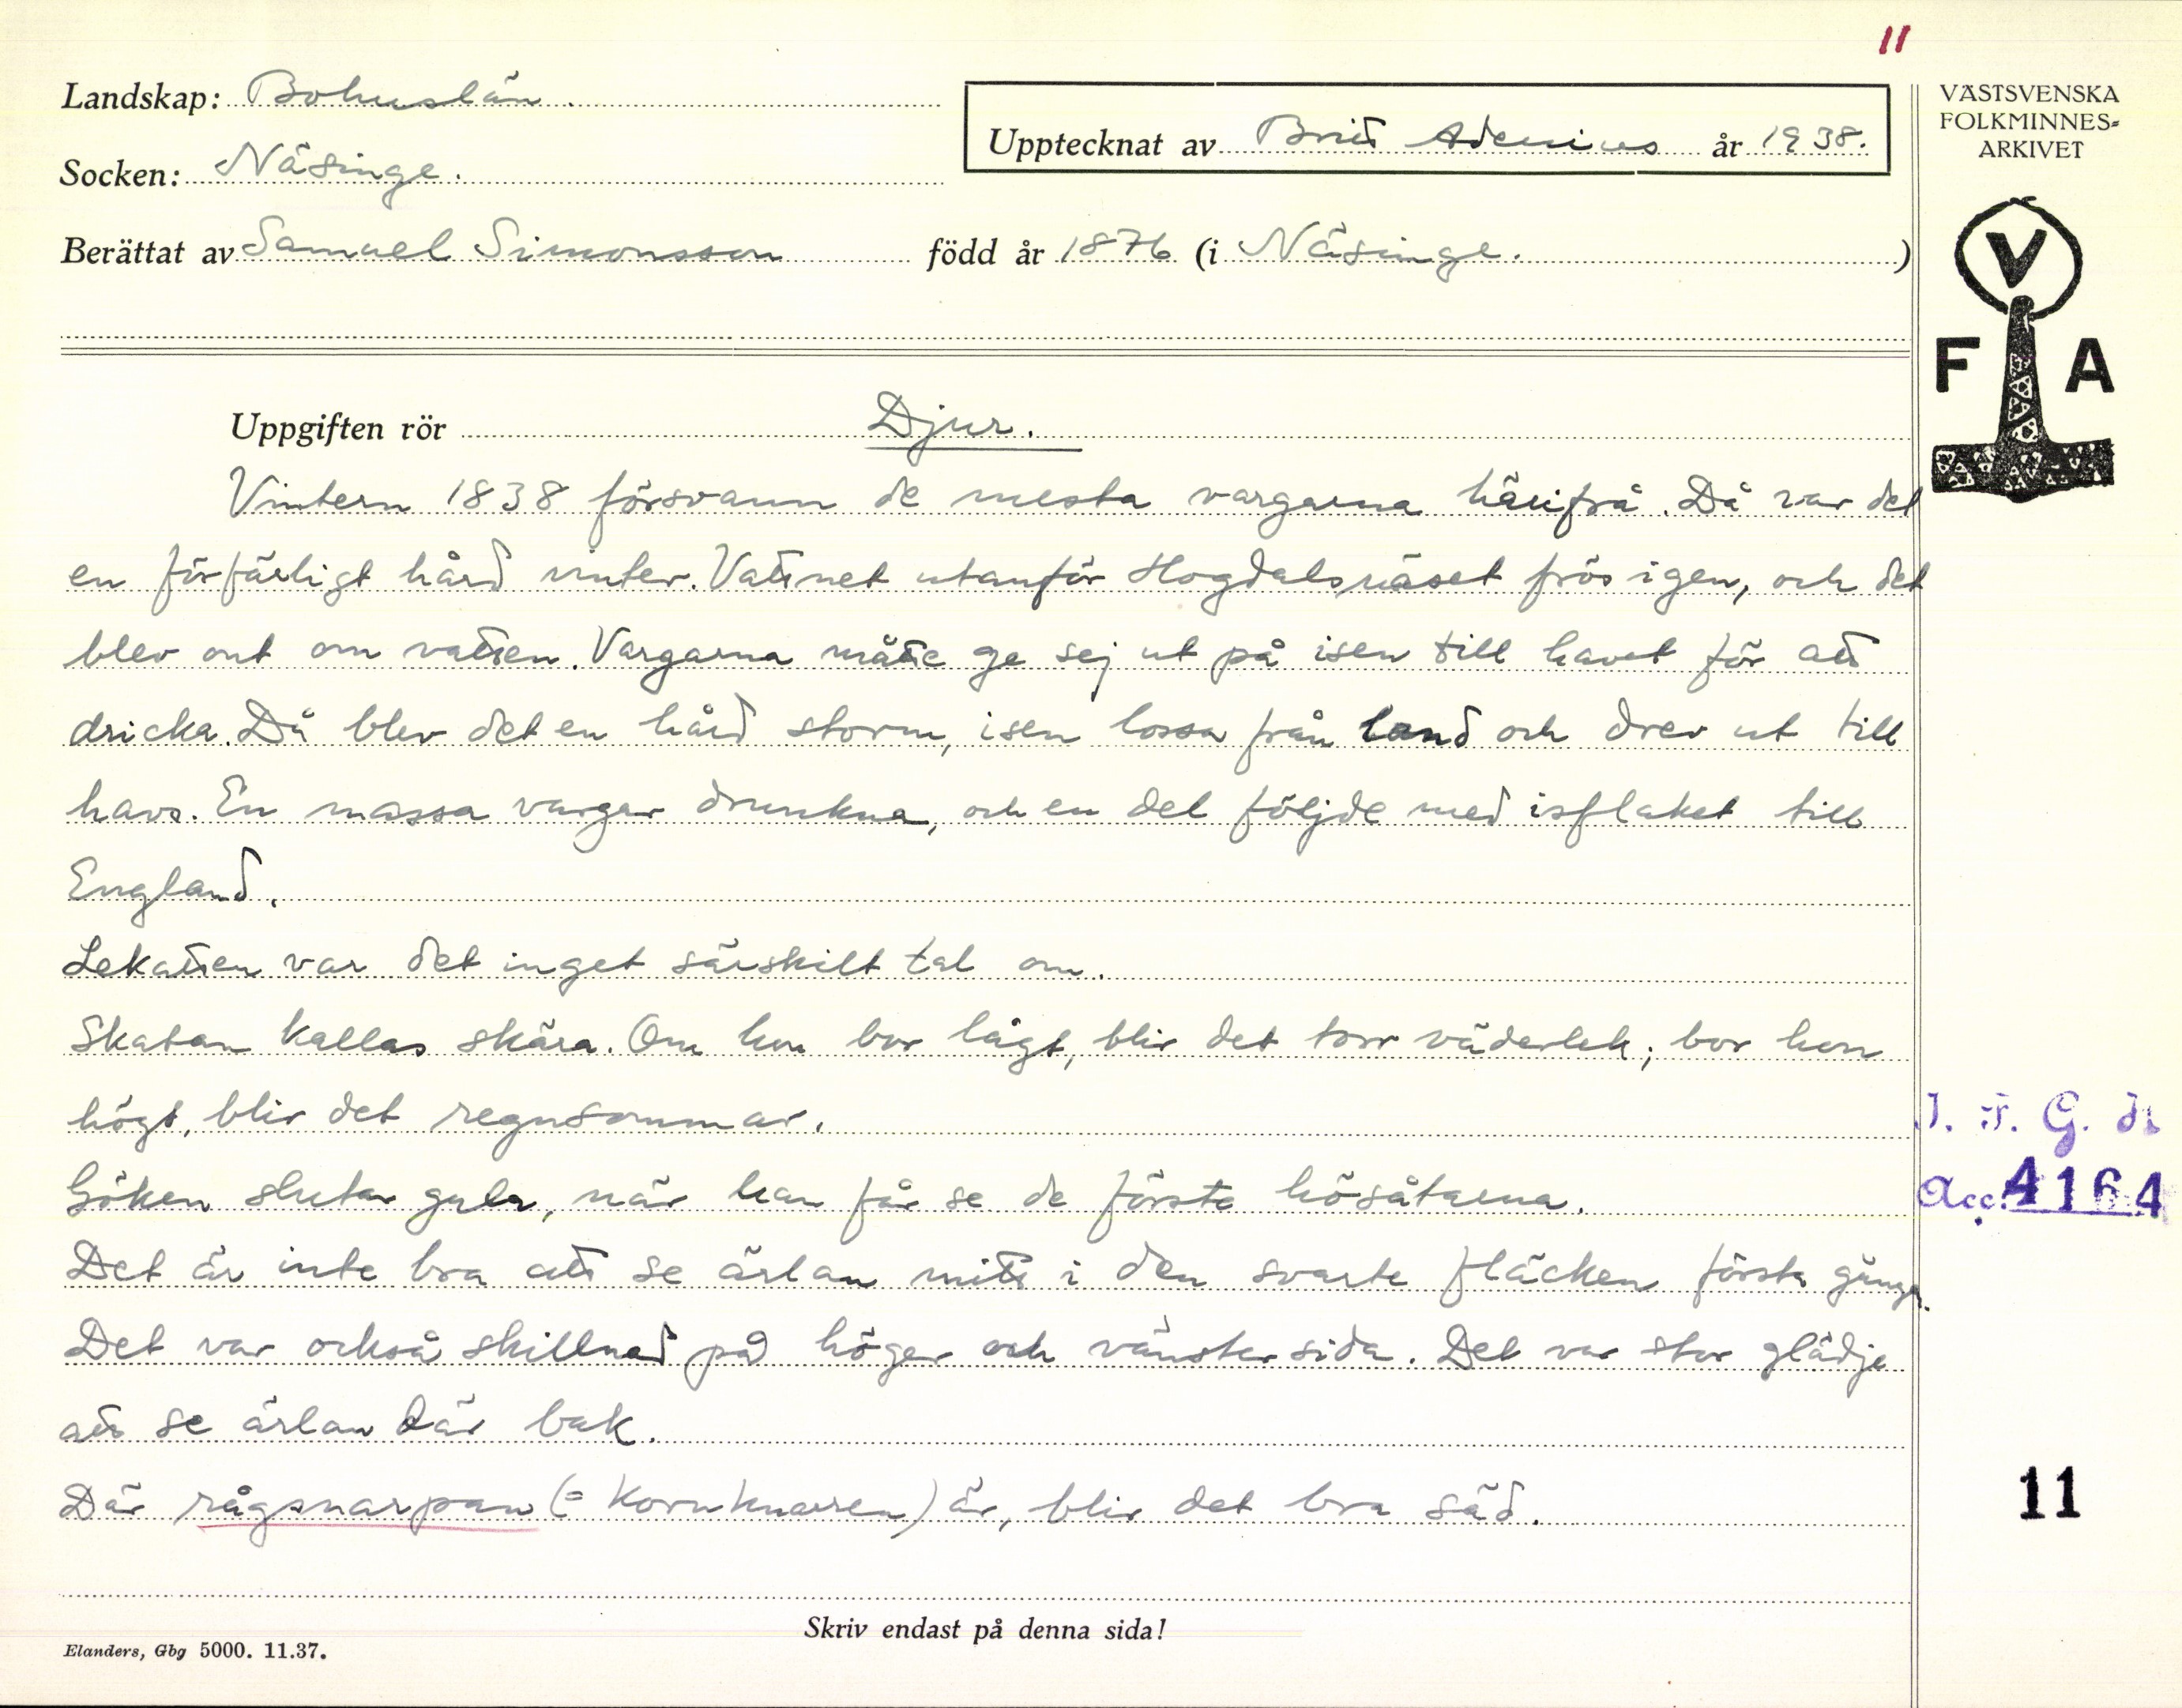 11
Landskap: Bohuslän.
Socken: Näsinge.
Upptecknat av Britt Adenius år 1938.
Berättat av Samuel Simonsson född år 1876 (i Näsinge.)
VÄSTSVENSKA
FOLKMINNES=
ARKIVET
V
F A
Uppgiften rör Djur.
Vintern 1838 försvann de mesta vargarna härifrå. Då var det
en förfärligt hård vinter. Vattnet utanför Hogdalsnäset frös igen, och det
blev ont om vatten. Vargarna måtte ge sej ut på isen till havet för att
dricka. Då blev det en hård storm, isen lossa från land och drev ut till
havs. En massa vargar drunkna, och en del följde med isflaket till
England.
Lekatten var det inget särskilt tal om.
Skatan kallas skära. Om hon bor lågt, blir det torr väderlek; bor hon
högt, blir det regnsommar.
Göken slutar gala, när han får se de första hösåtarna.
Det är inte bra att se ärlan mitt i den svarte fläcken första gången.
Det var också skillnad på höger och vänster sida. Det var stor glädje
att se ärlan där bak.
Där rågsnarpan (= kornknarren) är, blir det bra säd.
I. F. G. 
Acc. 4164
11
Skriv endast på denna sida!
Elanders, Gbg 5000. 11.37.